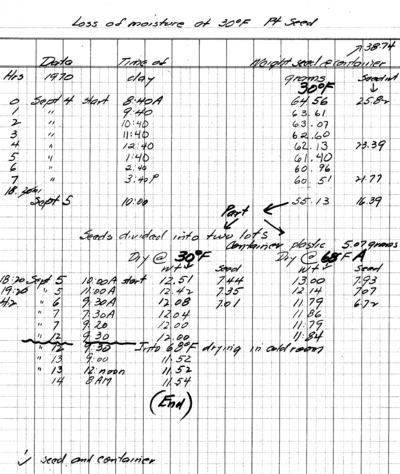 Loss of moisture at 30°F Pt Seed
38.74
Date Time of Weight seed & container
Hrs 1970 day grams Seed wt
30°F
0 Sept 4 start 8:40A 64.56 25.82
1 " 9:40 63.61
2 " 10:40 63.07
3 " 11:40 62.60
4 " 12:40 62.13 23.39
5 " 1:40 61.40
6 " 2:40 60.96
7 " 3:40P 60.51 21.77
Sept 5 10:00 55.13 16.39
Part
Seeds divided into two lots
Container plastic 5.07 grams
Dry @ 30°F Dry @ 68°F A
wt Seed wt Seed
18:20 Sept 5 10:00A start 12.51 7.44 13.00 7.93
19:20 " 5 11:00A 12.42 7.35 12.14 7.07
" 6 9:30A 12.08 7.01 11.79 6.72
" 7 7:30A 12.04 11.86
" 7 9.20 12.00 11.79
" 12 9.30 12.00 11.84
" 12 9:30 Into 68°F drying in cold room
" 13 9:00 11.52
" 13 12 noon 11.52
14 8AM 11.54
(End)
seed and container